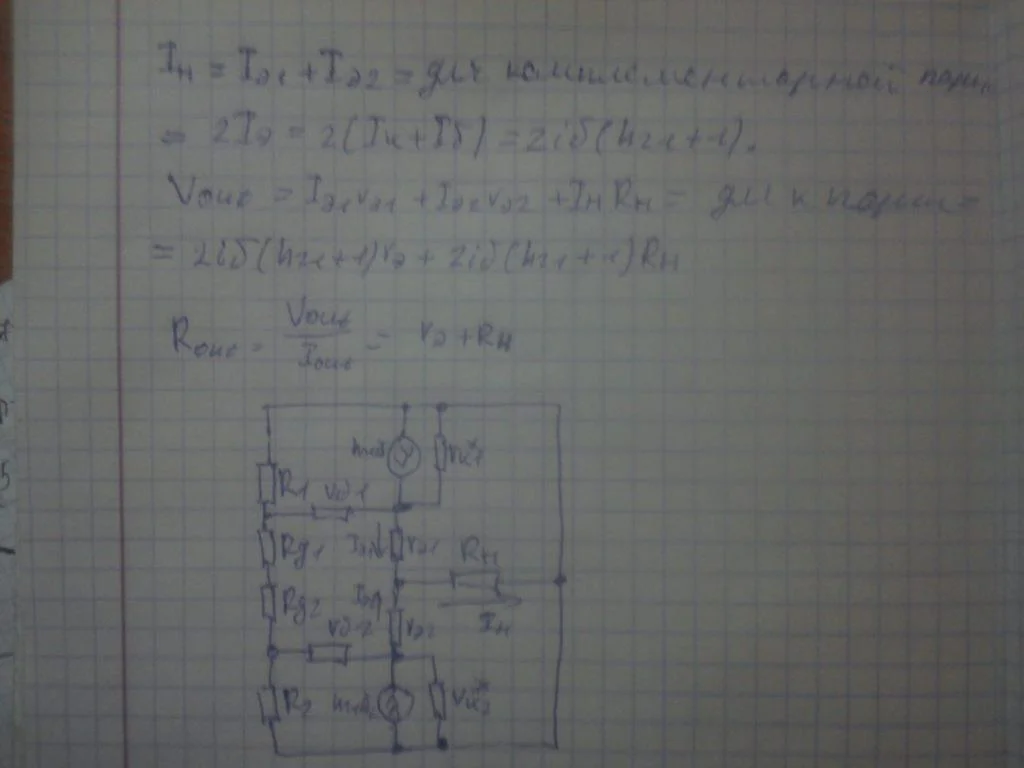 Iн = Iэ1 + Iэ2 = для комплементарной пары
= 2Iэ = 2(Iк+Iб) = 2iб(h21+1).
Vout = Iэ1rэ1 + Iэ2rэ2 + IнRн = для к пары =
= 2iб(h21+1)rэ + 2iб(h21+1)Rн
Rout = Vout/Iout = rэ + Rн
R1
rб1
rк*1
Rд1
Iэ1
rэ1
Rн
Rд2
Iэ2
rб2
rэ2
Iн
R2
rк*2